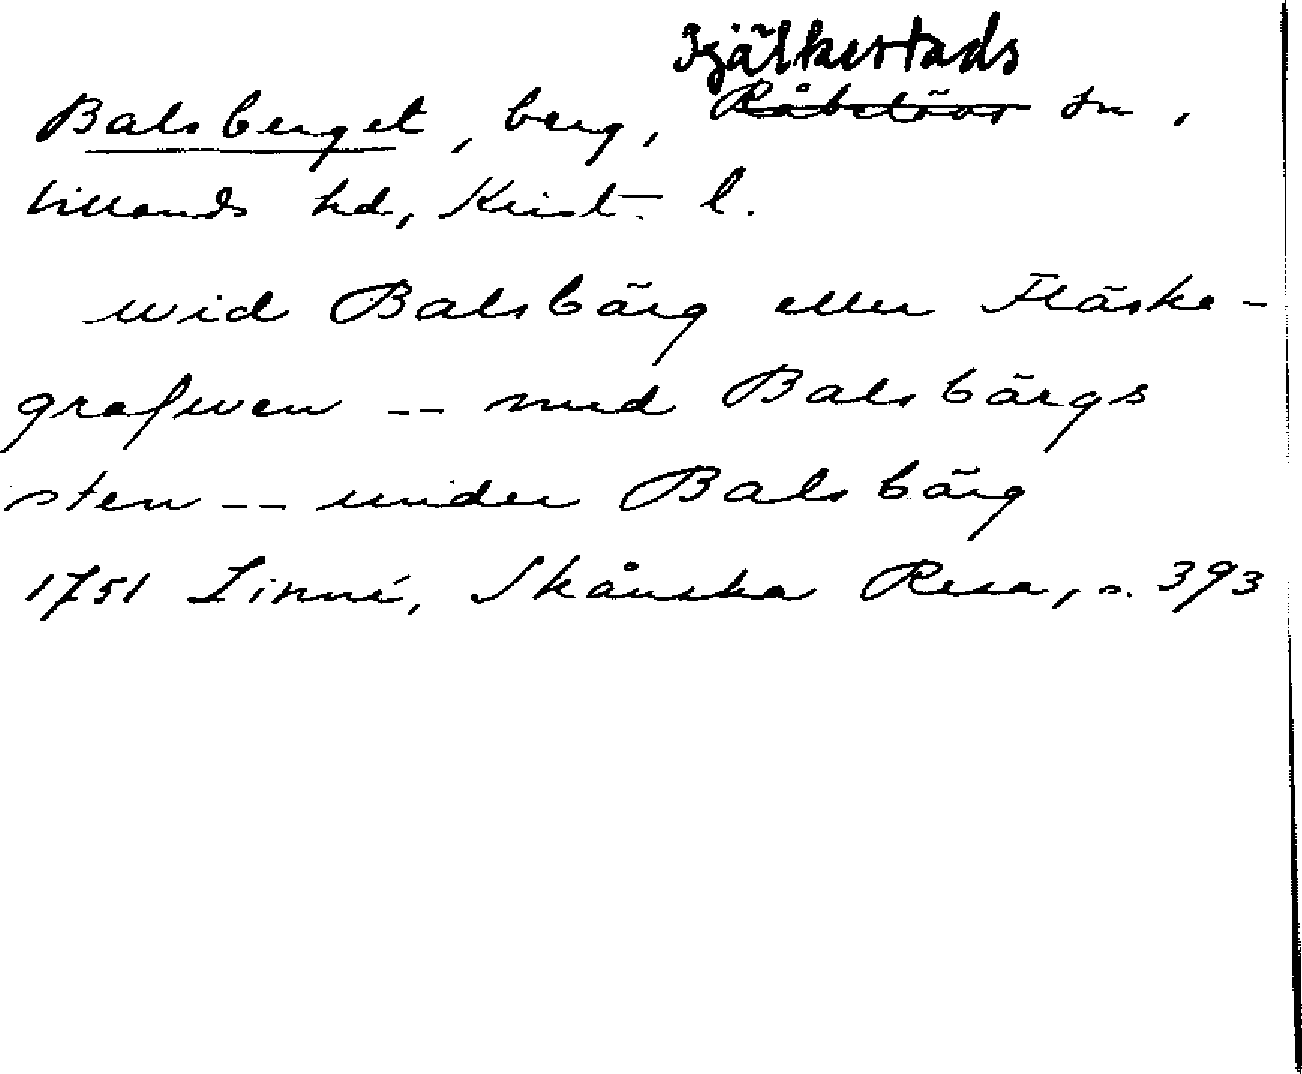 Fjälkestads
Balsberget, berg, Råbelövs sn,
Villands hd, Krist. l.
wid Balsbärg eller Fläske-
grafwen -- med Balsbärgs
sten -- under Balsbärg
1751 Linné, Skånska Resa, s. 393